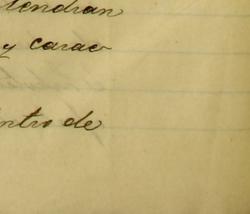 tendran
y carac
ntro de